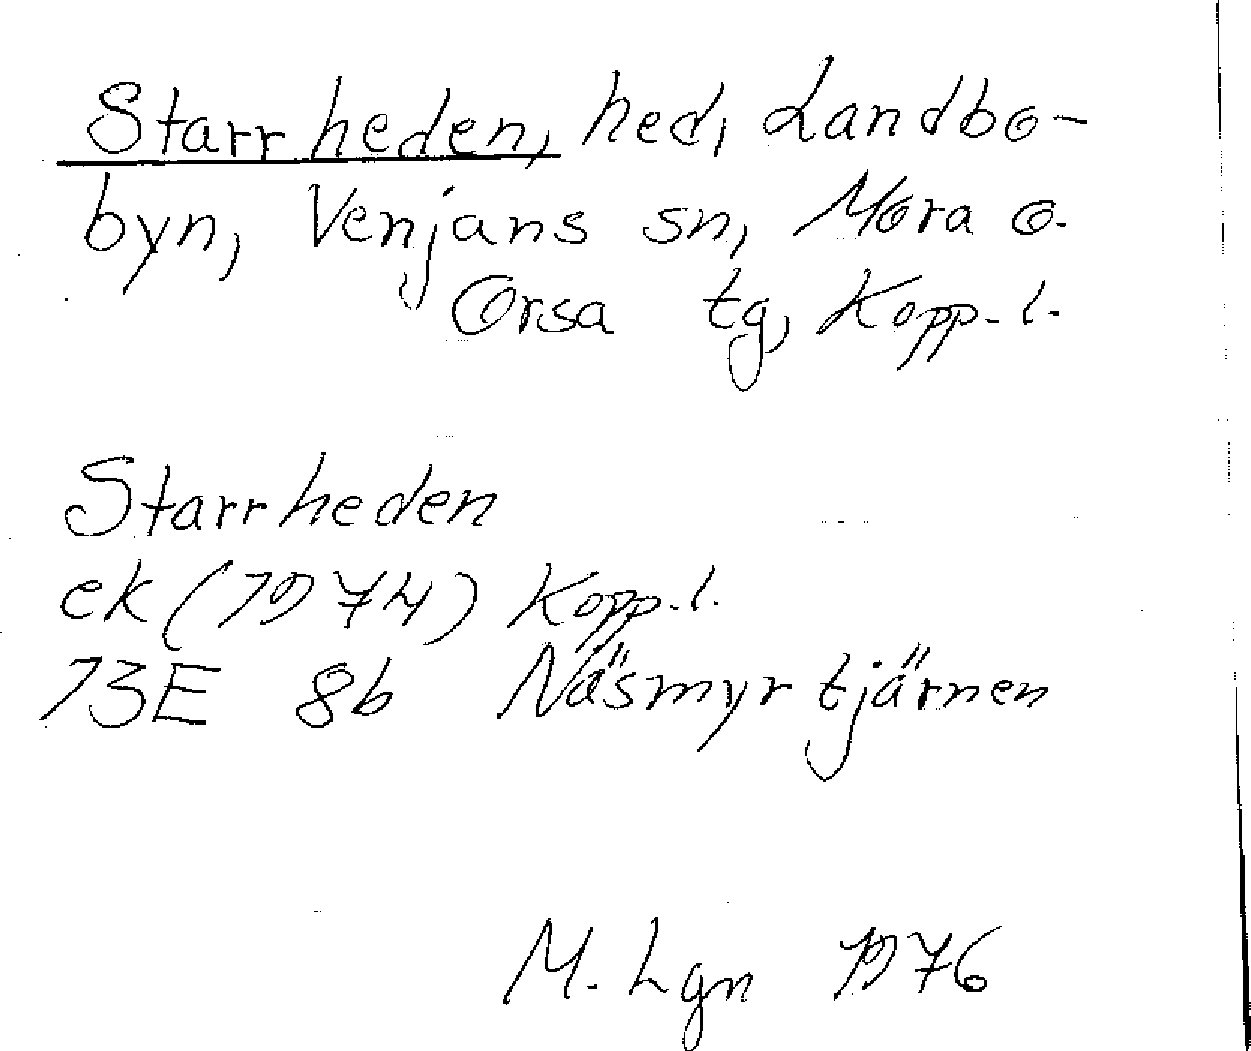 Starrheden, hed, Landbo-
byn, Venjans sn, Mora o.
Orsa tg, Kopp. l.
Starrheden
ek (1974) Kopp. l.
13E 8b Näsmyrtjärnen
M. Lgn 1976